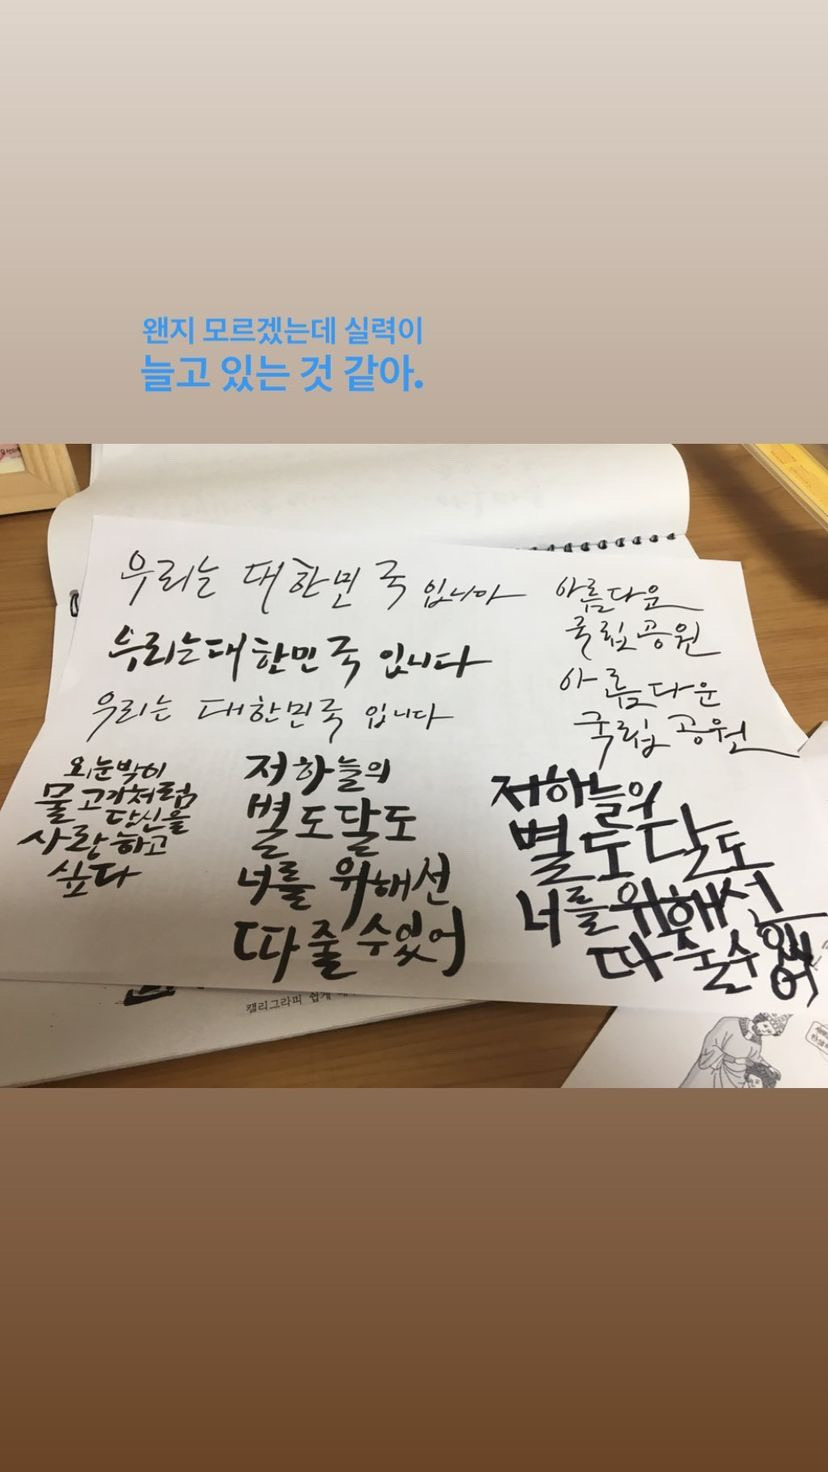 왠지 모르겠는데 실력이
늘고 있는 것 같아.
우리는 대한민국 입니다
우리는 대한민국 입니다
우리는 대한민국 입니다
아름다운
국립공원
아름다운
국립공원
외눈박이
물고기처럼
당신을
사랑하고
싶다
저하늘의
별도달도
너를 위해선
따줄 수있어
저하늘의
별도달도
너를위해서
따줄수있어
캘리그라피 쉽게